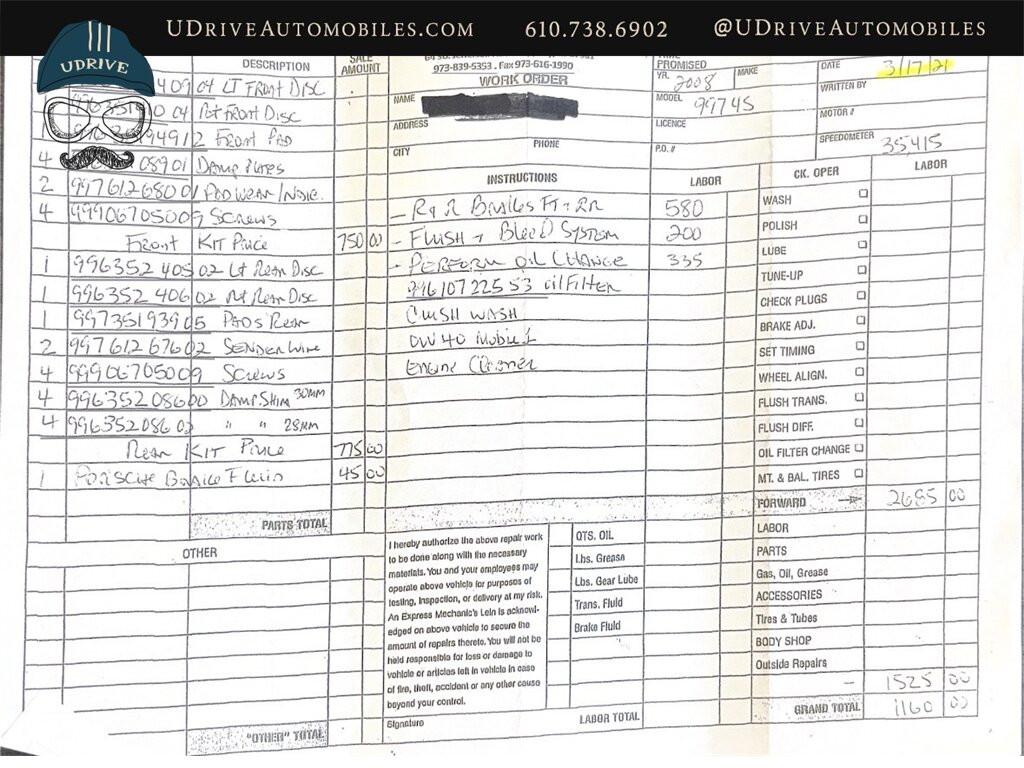 UDRIVEAUTOMOBILES.COM 610.738.6902 @UDRIVEAUTOMOBILES
UDRIVE
DESCRIPTION SALE AMOUNT
973-839-5353 . Fax 973-616-1990
WORK ORDER
PROMISED
YR. 2008 MAKE
DATE 3/17/21
WRITTEN BY
NAME
MODEL 997 4S
MOTOR #
ADDRESS
LICENCE
SPEEDOMETER 35,415
CITY PHONE
P.O. #
409 04 LT Front Disc
04 Rt Front Disc
94912 Front Pad
4 08901 Damp Plates
2 99761268001 Pad Wear/Indic.
4 99906705009 Screws
Front Kit Price 750 00
1 996352 405 02 Lt Rear Disc
1 996352 406 02 Rt Rear Disc
1 99735193905 Pads Rear
2 99761267602 Sender Wire
4 99906705009 Screws
4 99635208600 Damp.Shim 30mm
4 99635208602 " " 28mm
Rear Kit Price 775 00
1 Porsche Brake Fluid 45 00
PARTS TOTAL
INSTRUCTIONS LABOR
- R & R Brakes Ft + RR 580
- Flush + Bleed System 200
- Perform Oil Change 335
996 107 225 53 oil filter
Crush Wash
0W40 Mobil 1
Engine Cleaner
CK. OPER LABOR
WASH
POLISH
LUBE
TUNE-UP
CHECK PLUGS
BRAKE ADJ.
SET TIMING
WHEEL ALIGN.
FLUSH TRANS.
FLUSH DIFF.
OIL FILTER CHANGE
MT. & BAL. TIRES
FORWARD 2685 00
LABOR
PARTS
Gas, Oil, Grease
ACCESSORIES
Tires & Tubes
BODY SHOP
Outside Repairs
- 1525 00
GRAND TOTAL 1160 00
OTHER
"OTHER" TOTAL
I hereby authorize the above repair work
to be done along with the necessary
materials. You and your employees may
operate above vehicle for purposes of
testing, inspection, or delivery at my risk.
An Express Mechanic's Lein is acknowl-
edged on above vehicle to secure the
amount of repairs thereto. You will not be
held responsible for loss or damage to
vehicle or articles left in vehicle in case
of fire, theft, accident or any other cause
beyond your control.
Signature
QTS. OIL
Lbs. Grease
Lbs. Gear Lube
Trans. Fluid
Brake Fluid
LABOR TOTAL